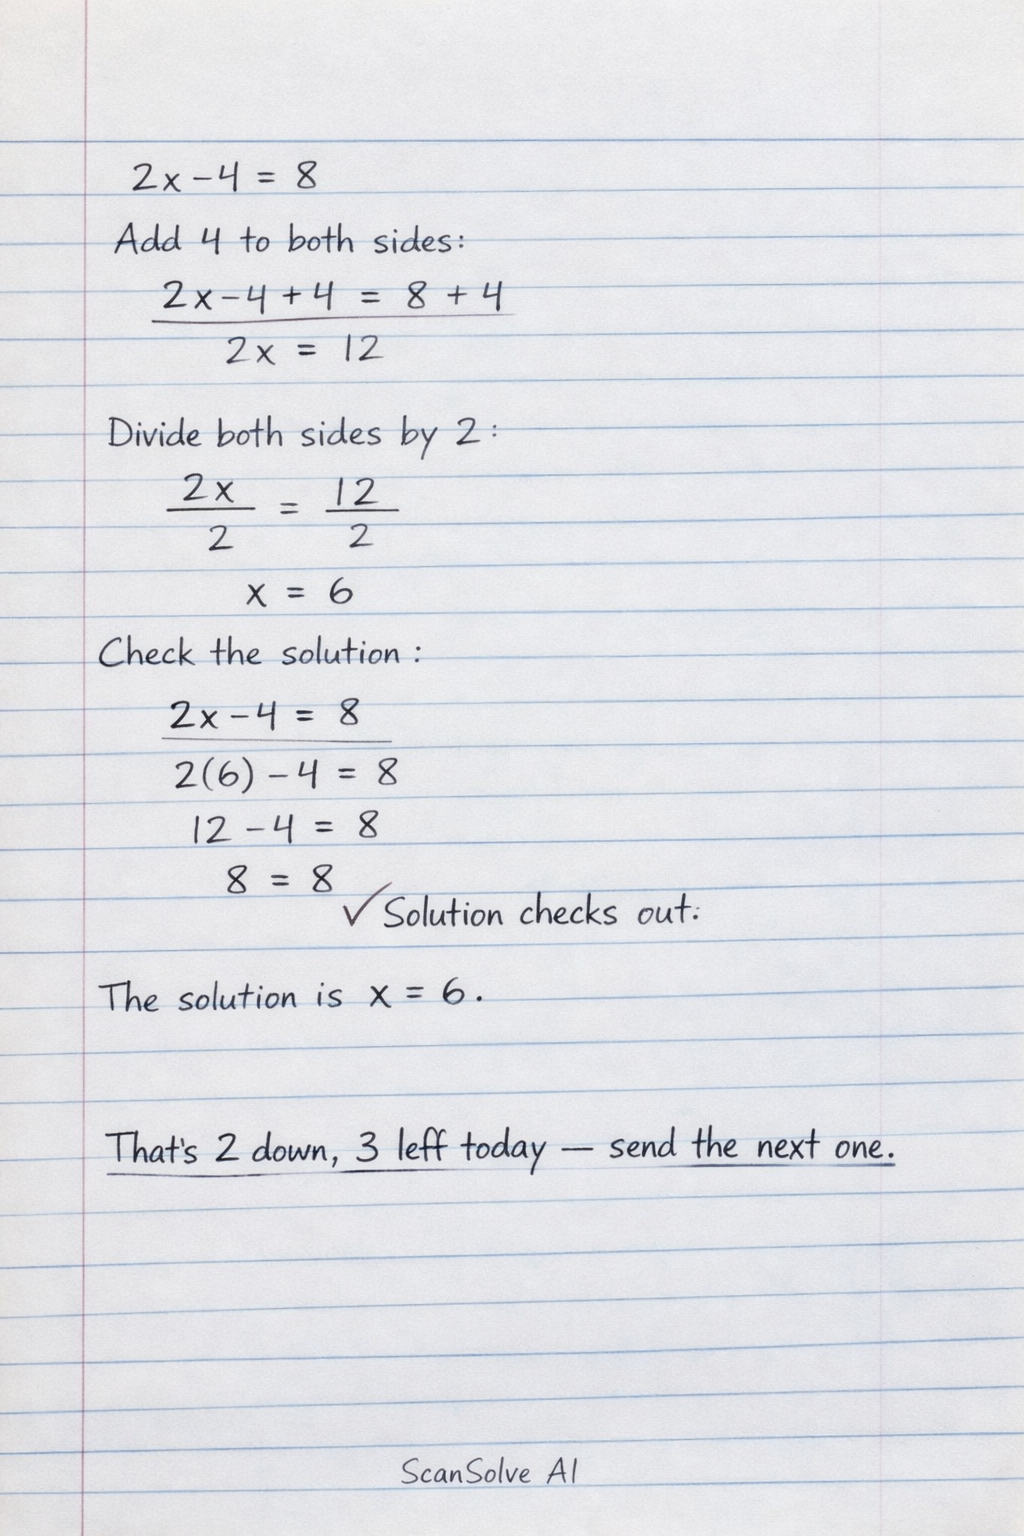 2x - 4 = 8
Add 4 to both sides:
2x - 4 + 4 = 8 + 4
2x = 12
Divide both sides by 2:
2x/2 = 12/2
x = 6
Check the solution:
2x - 4 = 8
2(6) - 4 = 8
12 - 4 = 8
8 = 8
✓ Solution checks out.
The solution is x = 6.
That's 2 down, 3 left today — send the next one.
ScanSolve AI